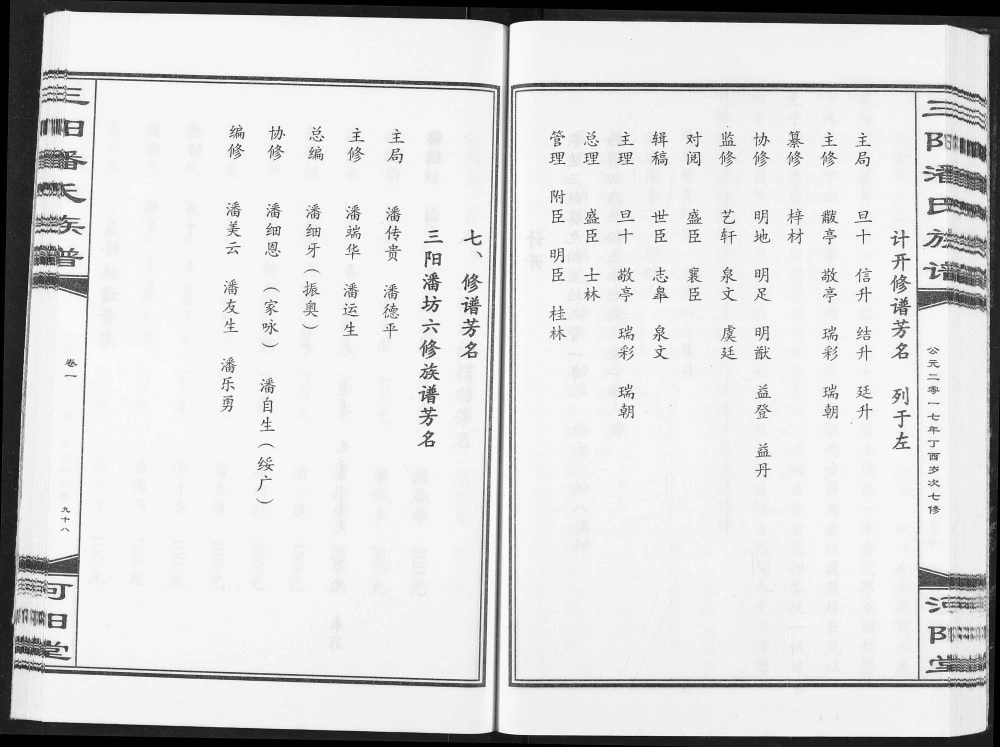 三阳潘氏族谱
公元二零一七年丁酉岁次七修
河阳堂
计开修谱芳名 列于左
主局 旦十 信升 结升 廷升
主修 黻亭 敬亭 瑞彩 瑞朝
纂修 梓材
协修 明地 明足 明猷 益登 益丹
监修 艺轩 泉文 虞廷
对阅 盛臣 襄臣
辑稿 世臣 志皋 泉文
主理 旦十 敬亭 瑞彩 瑞朝
总理 盛臣 士林
管理 附臣 明臣 桂林
七、修谱芳名
三阳潘坊六修族谱芳名
主局 潘传贵 潘德平
主修 潘端华 潘运生
总编 潘细牙（振奥）
协修 潘细恩（家咏） 潘自生（绥广）
编修 潘美云 潘友生 潘乐勇
三阳潘氏族谱
卷一
九十八
河阳堂